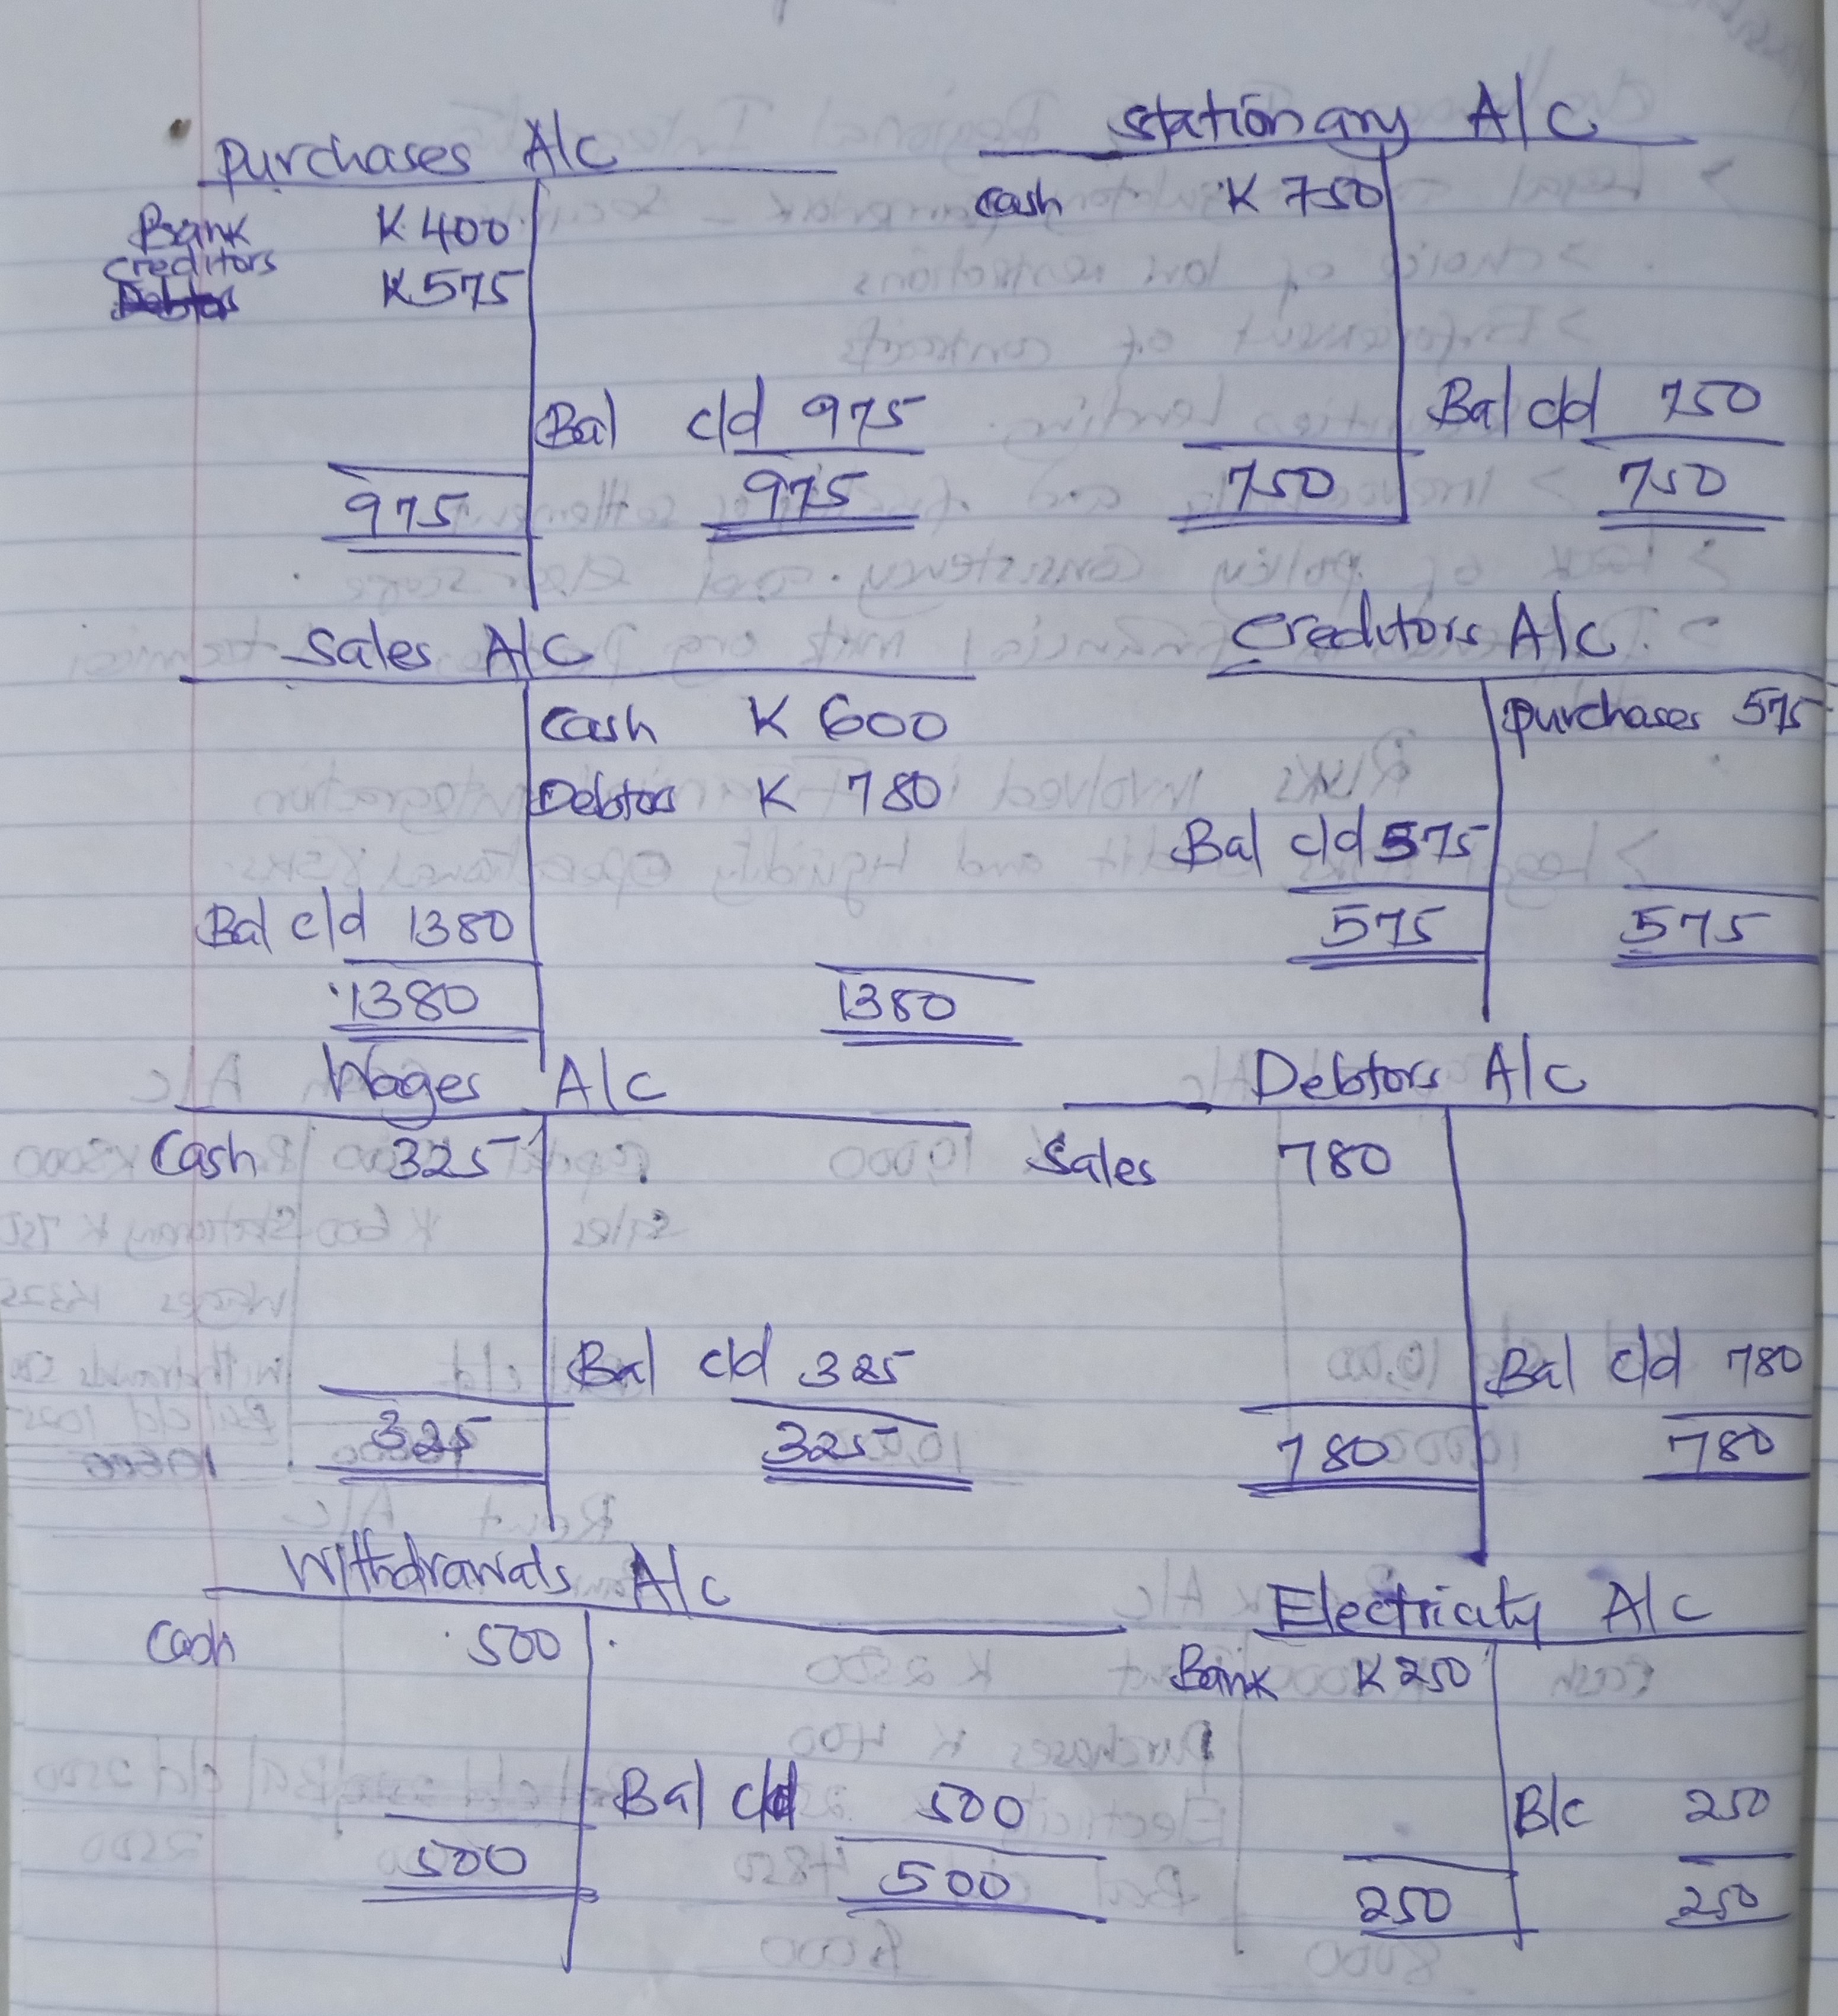 Purchases A/C
Bank K 400
Creditors
K 575
Bal c/d 975
975 975
Stationary A/C
Cash K 750
Bal c/d 750
750 750
Sales A/C
Cash K 600
Debtors K 780
Bal c/d 1380
1380 1380
Creditors A/C.
Purchases 575
Bal c/d 575
575 575
Wages A/C
Cash 325
Bal c/d 325
325 325
Debtors A/C
Sales 780
Bal c/d 780
780 780
Withdrawals A/C
Cash 500
Bal c/d 500
500 500
Electricity A/C
Bank K 250
B/c 250
250 250